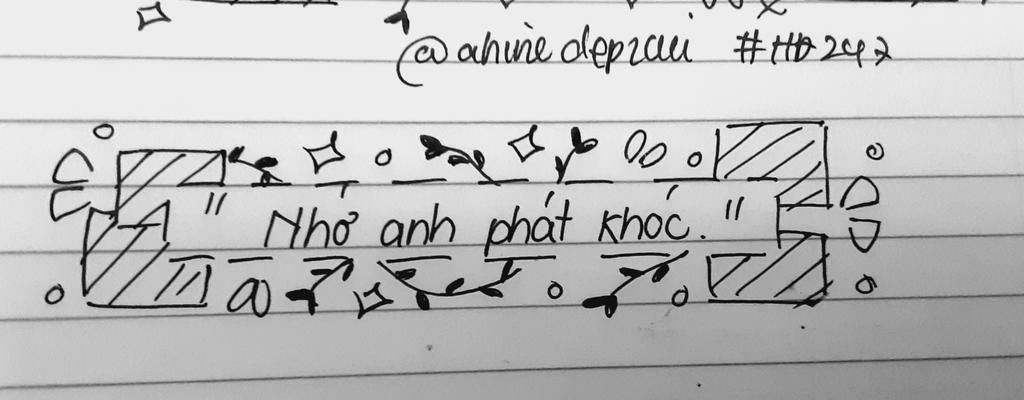 @anhne deprai #HD242
" Nhớ anh phát khóc. "